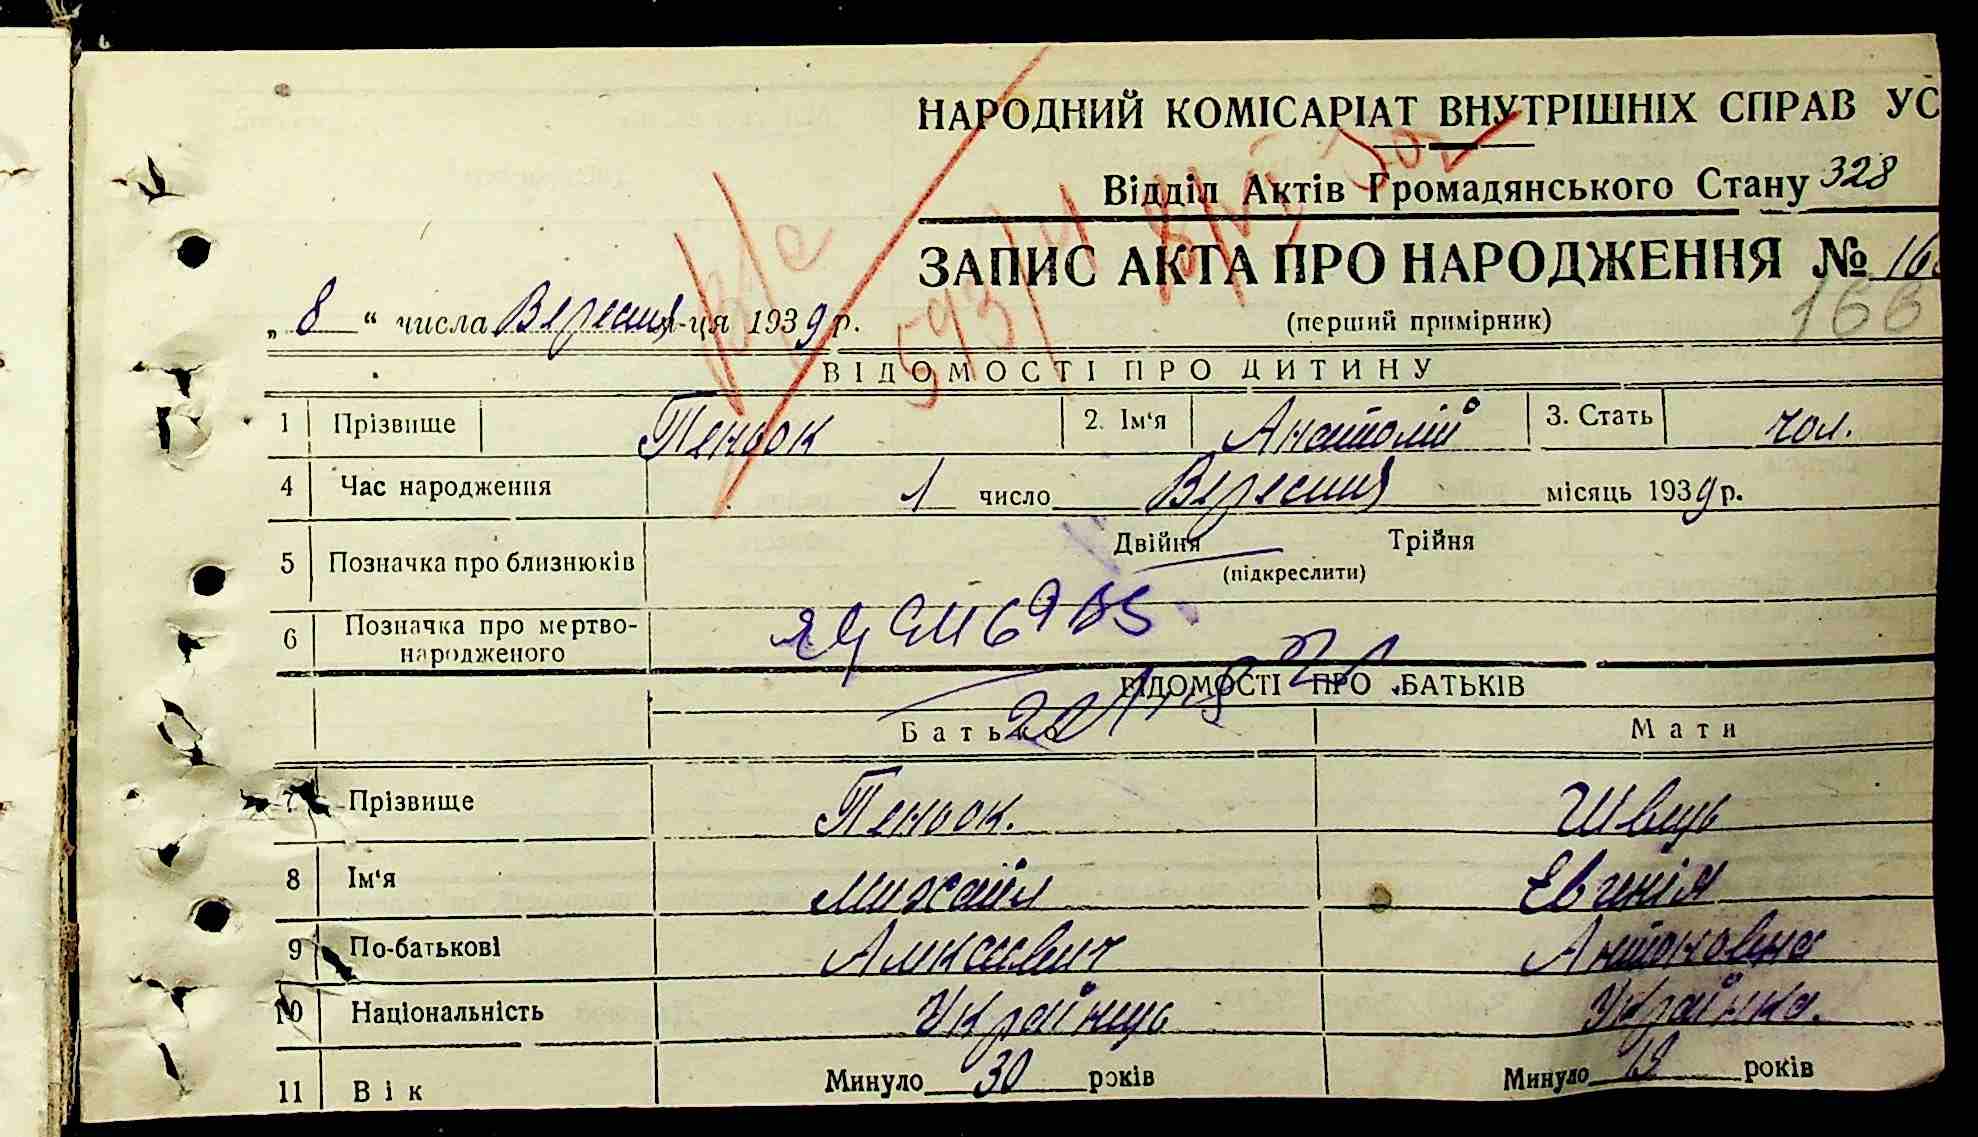 НАРОДНИЙ КОМІСАРІАТ ВНУТРІШНІХ СПРАВ УС
Відділ Актів Громадянського Стану 328
ЗАПИС АКТА ПРО НАРОДЖЕННЯ № 16
166
„ 8 “ числа Вересня м-ця 1939 р. (перший примірник)
ВІДОМОСТІ ПРО ДИТИНУ
1 Прізвище Пеньок 2. Ім'я Анатолій 3. Стать чол.
4 Час народження 1 число Вересня місяць 1939 р.
5 Позначка про близнюків Двійня Трійня
(підкреслити)
6 Позначка про мертво-
народженого
ВІДОМОСТІ ПРО БАТЬКІВ
Батько Мати
7 Прізвище Пеньок. Швець
8 Ім'я Михайл Евгенія
9 По-батькові Алксеевич Антоновна
10 Національність Українць Українка.
11 Вік Минуло 30 років Минуло років